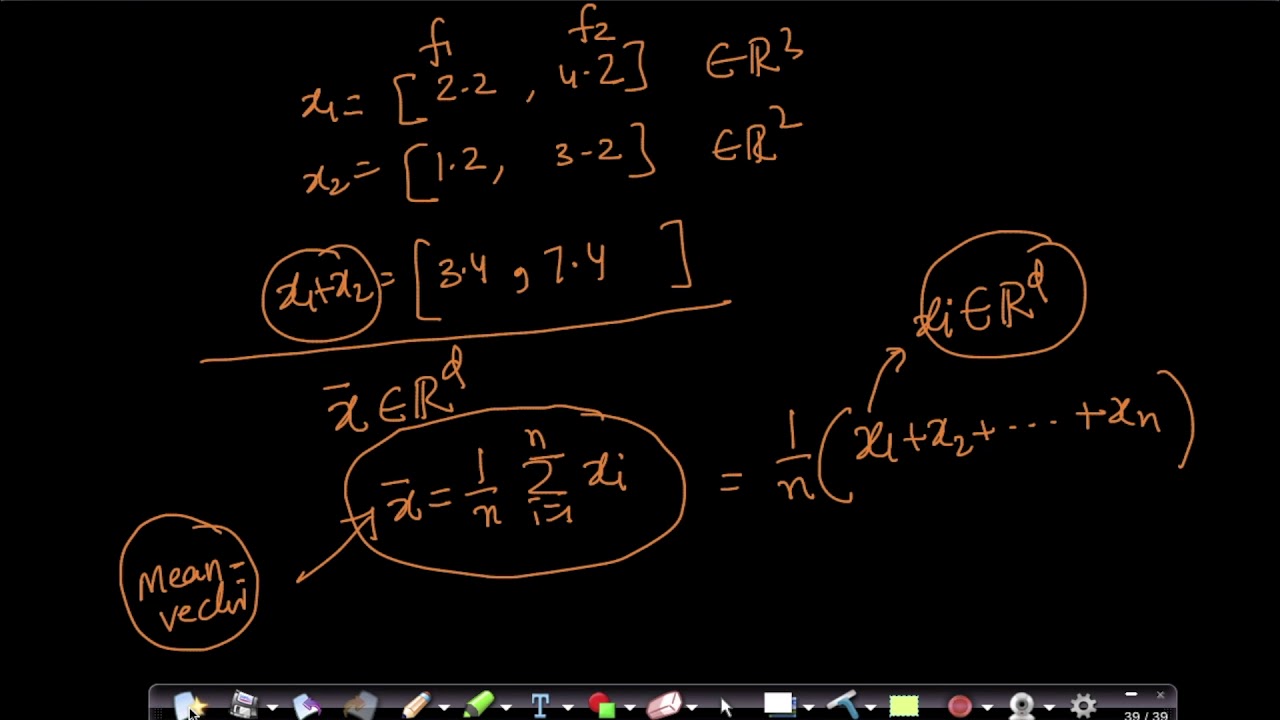 f₁ f₂
x₁ = [2.2 , 4.2] ∈ ℝ³
x₂ = [1.2, 3.2] ∈ ℝ²
x₁+x₂ = [3.4 , 7.4 ]
xi ∈ ℝᵈ
x̄ ∈ ℝᵈ
x̄ = 1/n Σⁿᵢ₌₁ xi = 1/n (x₁+x₂+ .... +xn)
Mean-
vector
T
39 / 39